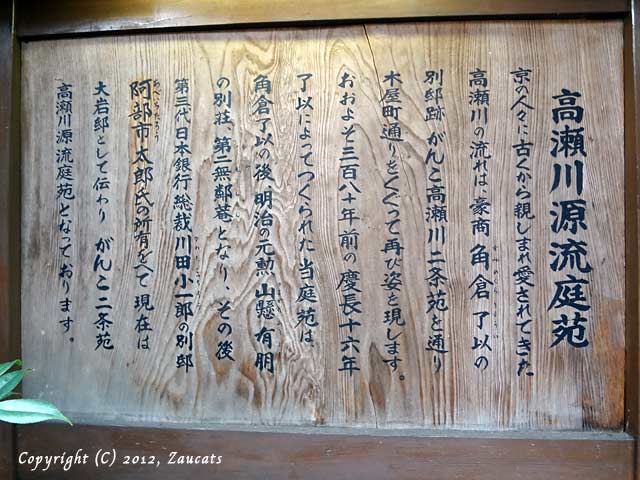 高瀬川源流庭苑
京の人々に古くから親しまれ愛されてきた
高瀬川の流れは、豪商 角倉了以の
別邸跡 がんこ高瀬川二条苑を通り
木屋町通りをくぐって再び姿を現します。
おおよそ三百八十年前の慶長十六年
了以によってつくられた当庭苑は、
角倉了以の後 明治の元勲 山懸有朋
の別荘、第二無鄰菴となり、その後
第三代日本銀行総裁川田小一郎の別邸
阿部市太郎氏の所有をへて 現在は
大岩邸として伝わり がんこ二条苑
高瀬川源流庭苑となっております。
Copyright (C) 2012, Zaucats